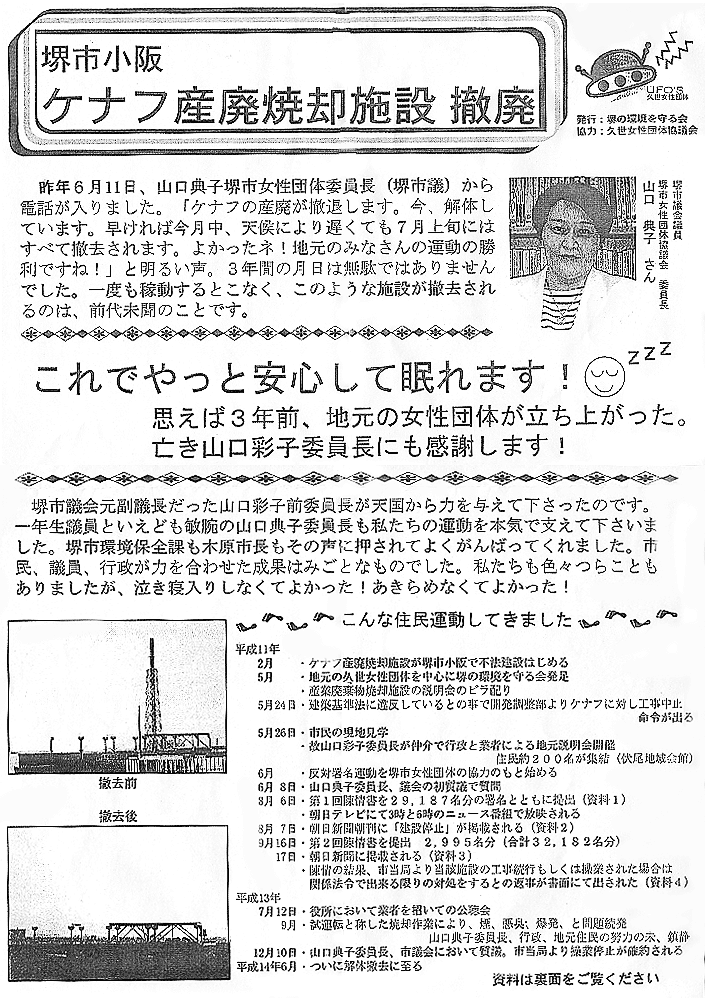 堺市小阪
ケナフ産廃焼却施設 撤廃
UFO'S
久世女性団体
発行：堺の環境を守る会
協力：久世女性団体協議会
昨年６月11日、山口典子堺市女性団体委員長（堺市議）から
電話が入りました。「ケナフの産廃が撤退します。今、解体し
ています。早ければ今月中、天候により遅くても７月上旬には
すべて撤去されます。よかったネ！地元のみなさんの運動の勝
利ですね！」と明るい声。３年間の月日は無駄ではありません
でした。一度も稼動するとこなく、このような施設が撤去され
るのは、前代未聞のことです。
堺市議会議員
堺市女性団体協議会 委員長
山口 典子 さん
これでやっと安心して眠れます！
zzz
思えば３年前、地元の女性団体が立ち上がった。
亡き山口彩子委員長にも感謝します！
堺市議会元副議長だった山口彩子前委員長が天国から力を与えて下さったのです。
一年生議員といえども敏腕の山口典子委員長も私たちの運動を本気で支えて下さいま
した。堺市環境保全課も木原市長もその声に押されてよくがんばってくれました。市
民、議員、行政が力を合わせた成果はみごとなものでした。私たちも色々つらことも
ありましたが、泣き寝入りしなくてよかった！あきらめなくてよかった！
撤去前
撤去後
こんな住民運動してきました
平成11年
2月 ・ケナフ産廃焼却施設が堺市小阪で不法建設はじめる
5月 ・地元の久世女性団体を中心に堺の環境を守る会発足
・産業廃棄物焼却施設の説明会のビラ配り
5月24日・建築基準法に違反しているとの事で開発調整部よりケナフに対し工事中止
命令が出る
5月26日・市民の現地見学
・故山口彩子委員長が仲介で行政と業者による地元説明会開催
住民約２００名が集結（伏尾地域会館）
6月 ・反対署名運動を堺市女性団体の協力のもと始める
6月 8日・山口典子委員長、議会の初質議で質問
8月 6日・第１回陳情書を２９,１８７名分の署名とともに提出（資料１）
・朝日テレビにて3時と6時のニュース番組で放映される
8月 7日・朝日新聞朝刊に「建設停止」が掲載される（資料２）
9月16日・第２回陳情書を提出 ２,９９５名分（合計３２,１８２名分）
17日・朝日新聞に掲載される（資料３）
・陳情の結果、市当局より当該施設の工事続行もしくは操業された場合は
関係法令で出来る限りの対処をするとの返事が書面にて出された（資料４）
平成13年
7月12日・役所において業者を招いての公聴会
9月・試運転と称した焼却作業により、煙、悪臭、爆発、と問題続発
山口典子委員長、行政、地元住民の努力の末、鎮静
12月10日・山口典子委員長、市議会において質議。市当局より操業停止が確約される
平成14年6月・ついに解体撤去に至る
資料は裏面をご覧ください